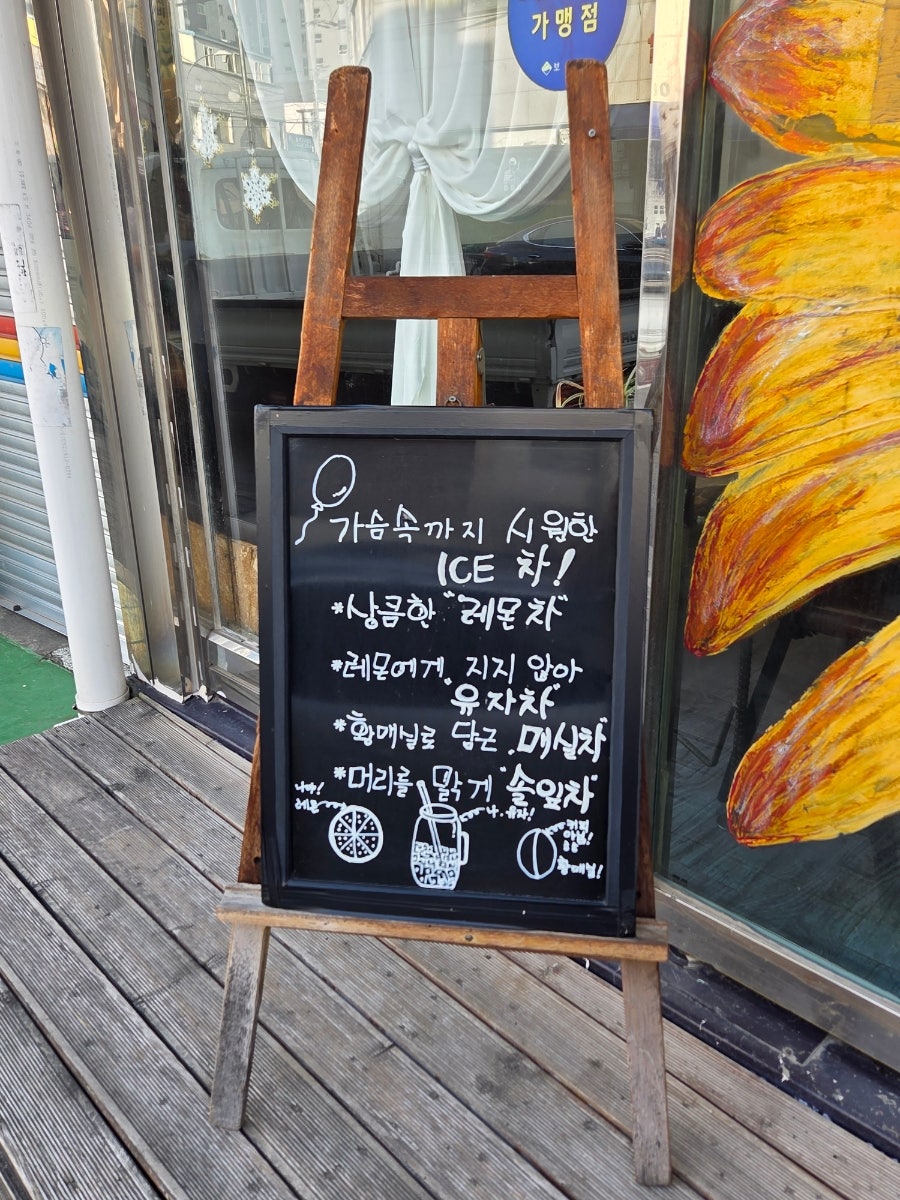 가맹점
가슴속까지 시원한
ICE 차!
*상큼한 "레몬차"
*레몬에게 지지 않아
"유자차"
*황매실로 담근 "매실차"
*머리를 맑게 "솔잎차"
나, 유자!
레몬
황매실!